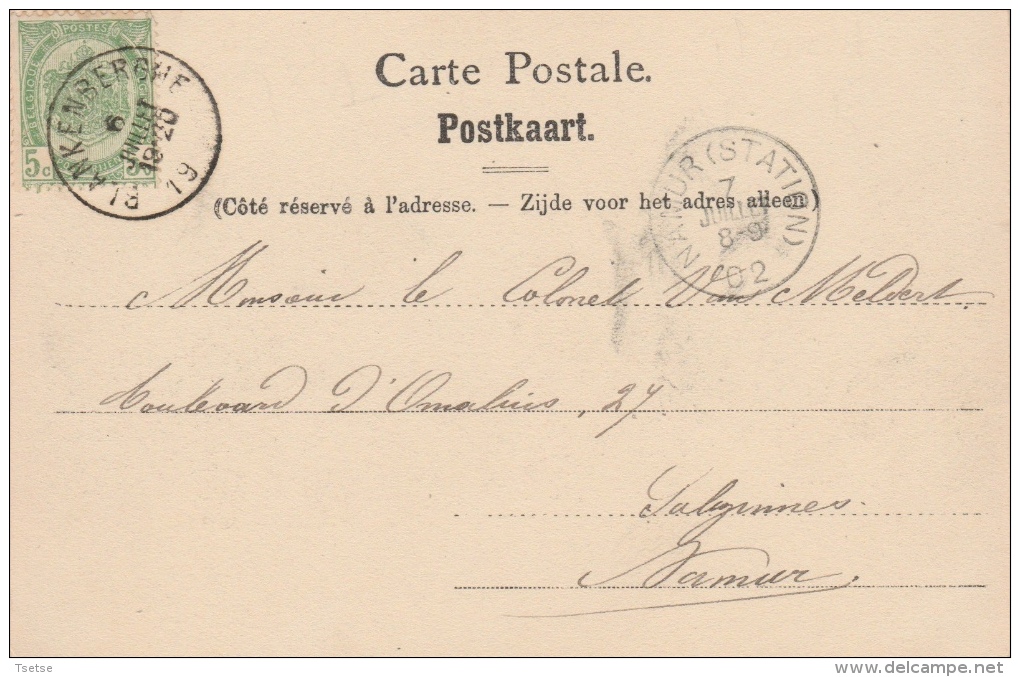 POSTES
BELGIQUE
5 c
BLANKENBERGHE
6
JUILLET
19-20
19
Carte Postale.
Postkaart.
(Côté réservé à l'adresse. — Zijde voor het adres alleen)
NAMUR (STATION)
7
JUILLET
8-9
02
Monsieur le Colonel Van Meldert
boulevard d'Omalius, 27
Salzinnes
Namur.
Tsetse
delcampe.net